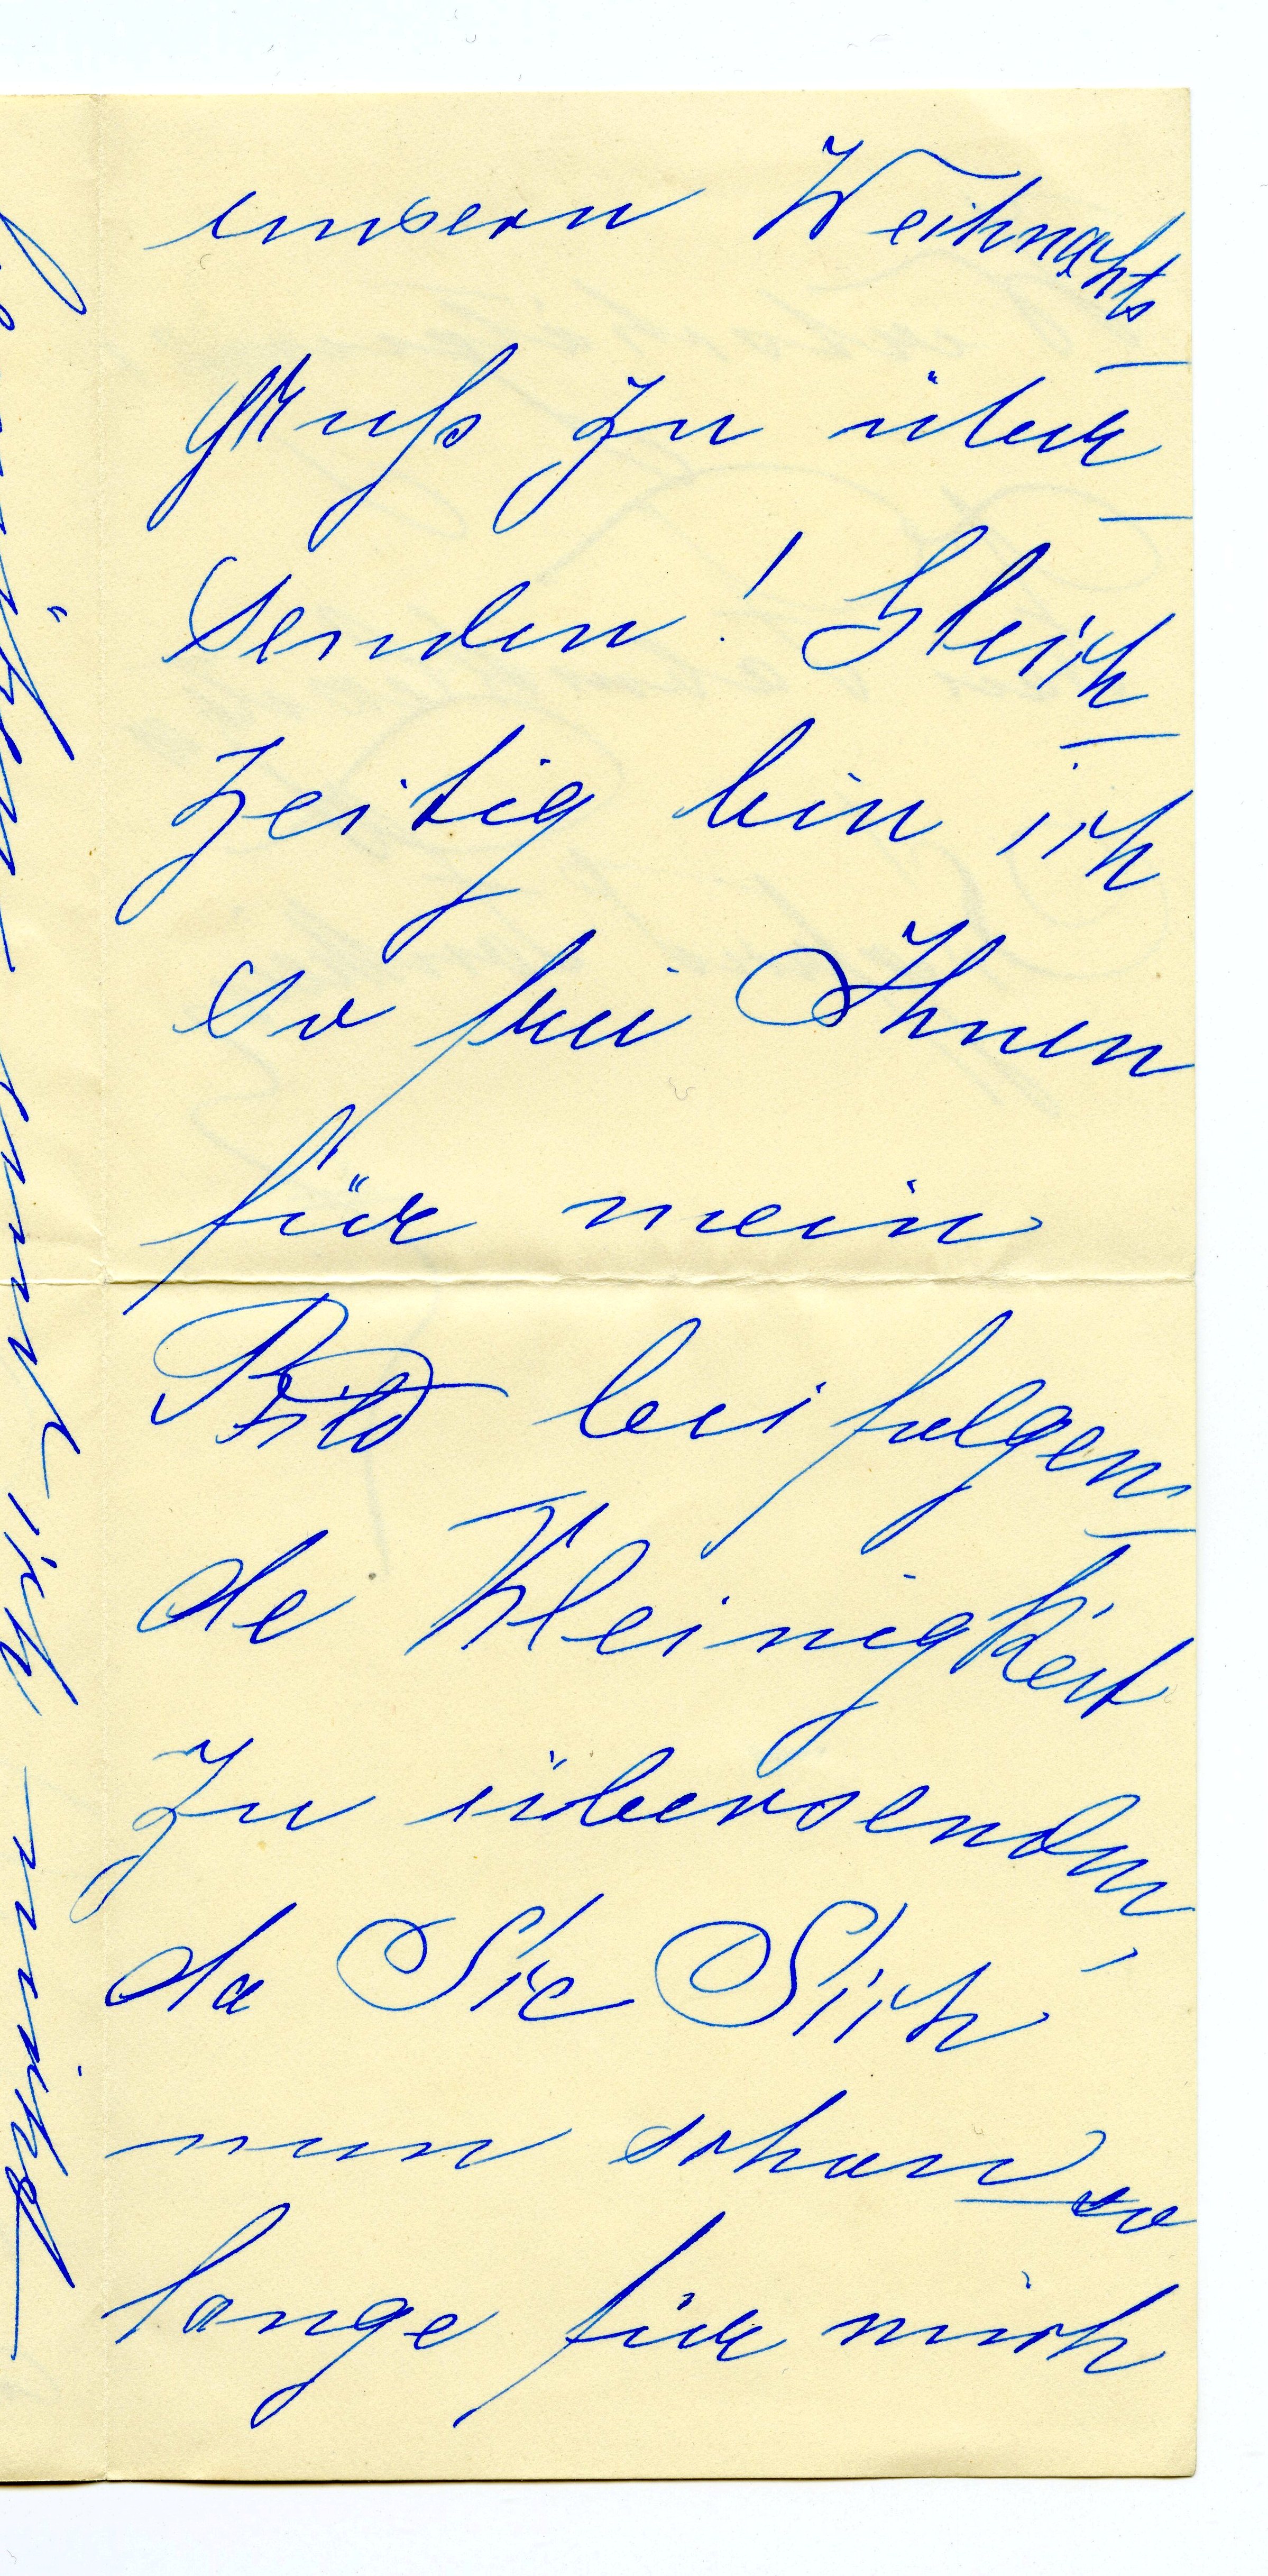 unsern Weihnachts-
Gruß zu über-
senden! Gleich-
zeitig bin ich
so frei Ihnen
für mein
Bild beifolgen-
de Kleinigkeit
zu übersenden,
da Sie Sich
nun schon so
lange für mich